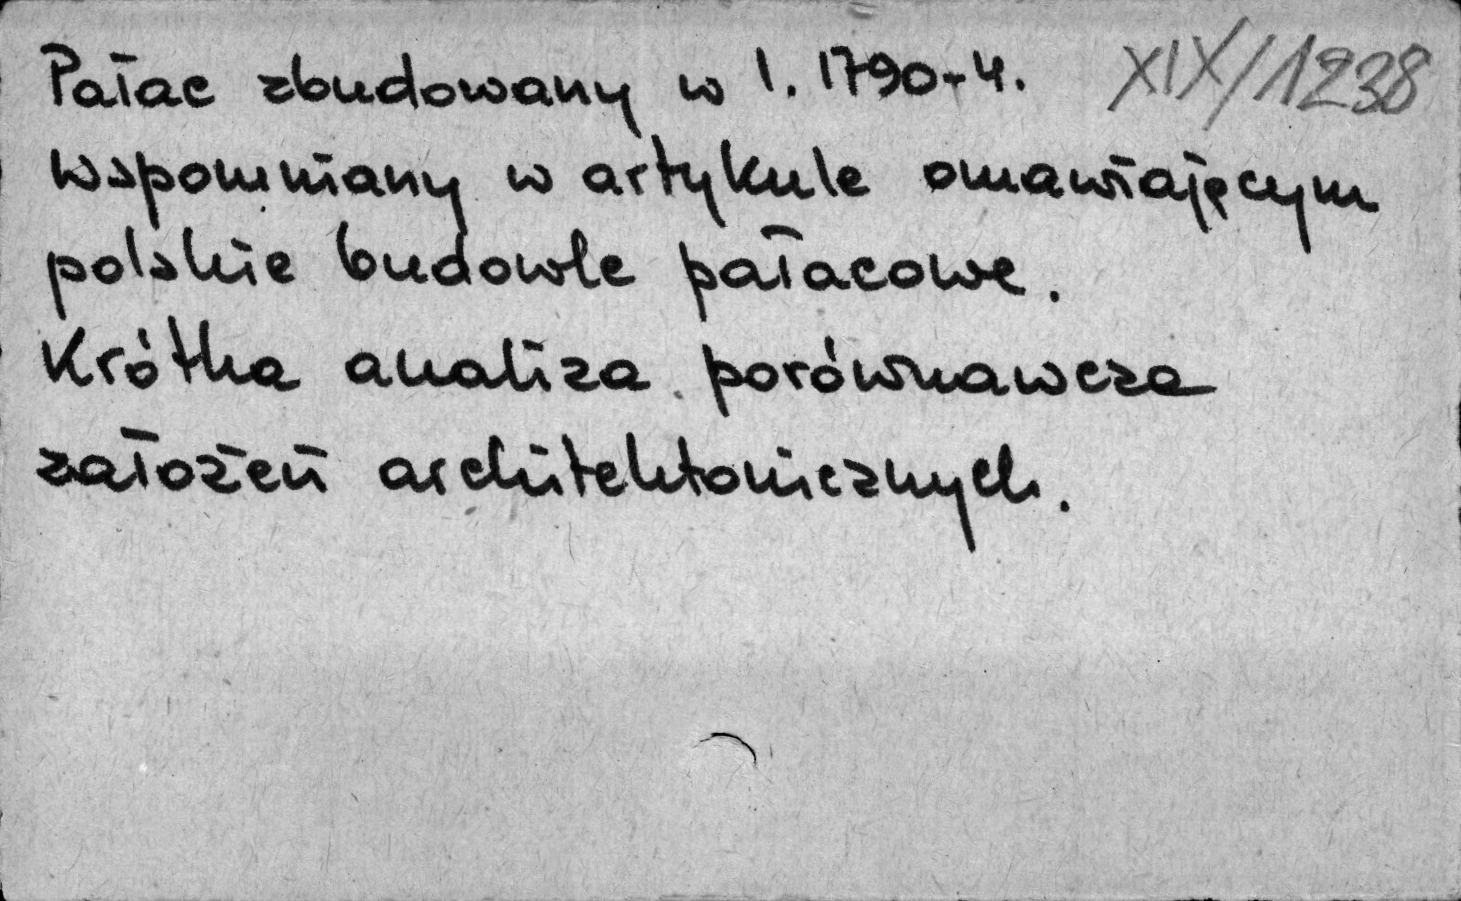 Pałac zbudowany w l. 1790-4. XIX/1238
wspomniany w artykule omawiającym
polskie budowle pałacowe.
Krótka analiza porównawcza
założeń architektonicznych.